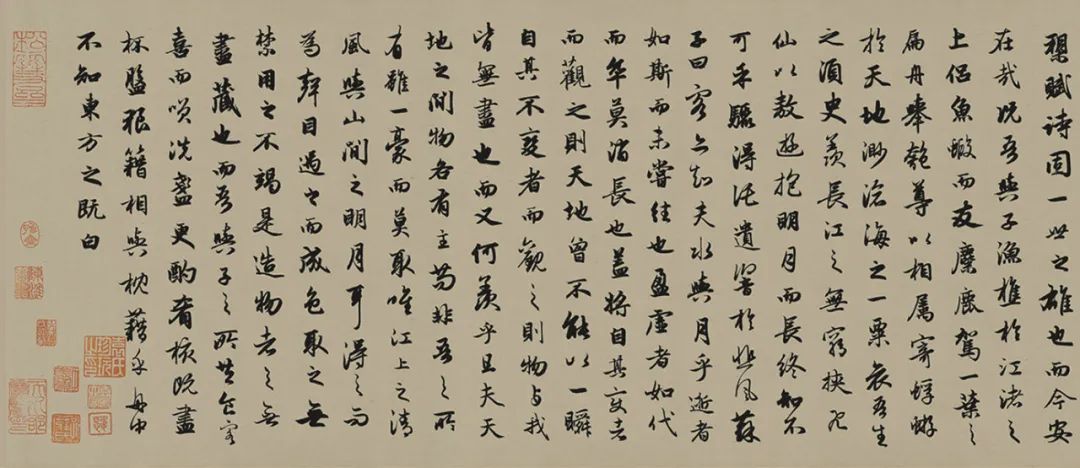 槊賦詩固一世之雄也而今安
在哉況吾與子漁樵於江渚之
上侶魚蝦而友麋鹿駕一葉之
扁舟舉匏尊以相屬寄蜉蝣
於天地渺滄海之一粟哀吾生
之須臾羨長江之無窮挾飛
仙以敖遊抱明月而長終知不
可乎驟得託遺響於悲風蘇
子曰客亦知夫水與月乎逝者
如斯而未嘗往也盈虛者如代
而卒莫消長也蓋將自其變者
而觀之則天地曾不能以一瞬
自其不變者而觀之則物與我
皆無盡也而又何羨乎且夫天
地之間物各有主苟非吾之所
有雖一豪而莫取唯江上之清
風與山間之明月耳得之而
為聲目遇之而成色取之無
禁用之不竭是造物者之無
盡藏也而吾與子之所共食客
喜而笑洗盞更酌肴核既盡
杯盤狼籍相與枕藉乎舟中
不知東方之既白